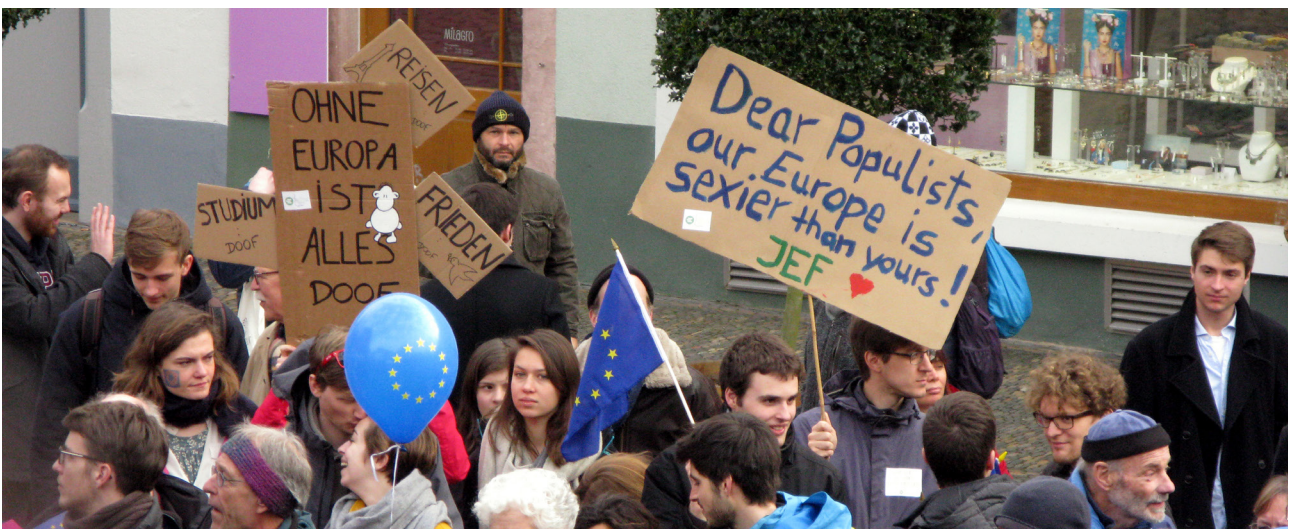 MILAGRO
REISEN
DOOF
OHNE
EUROPA
IST
ALLES
DOOF
STUDIUM
DOOF
FRIEDEN
DOOF
Dear Populists,
our Europe is
sexier than yours!
JEF